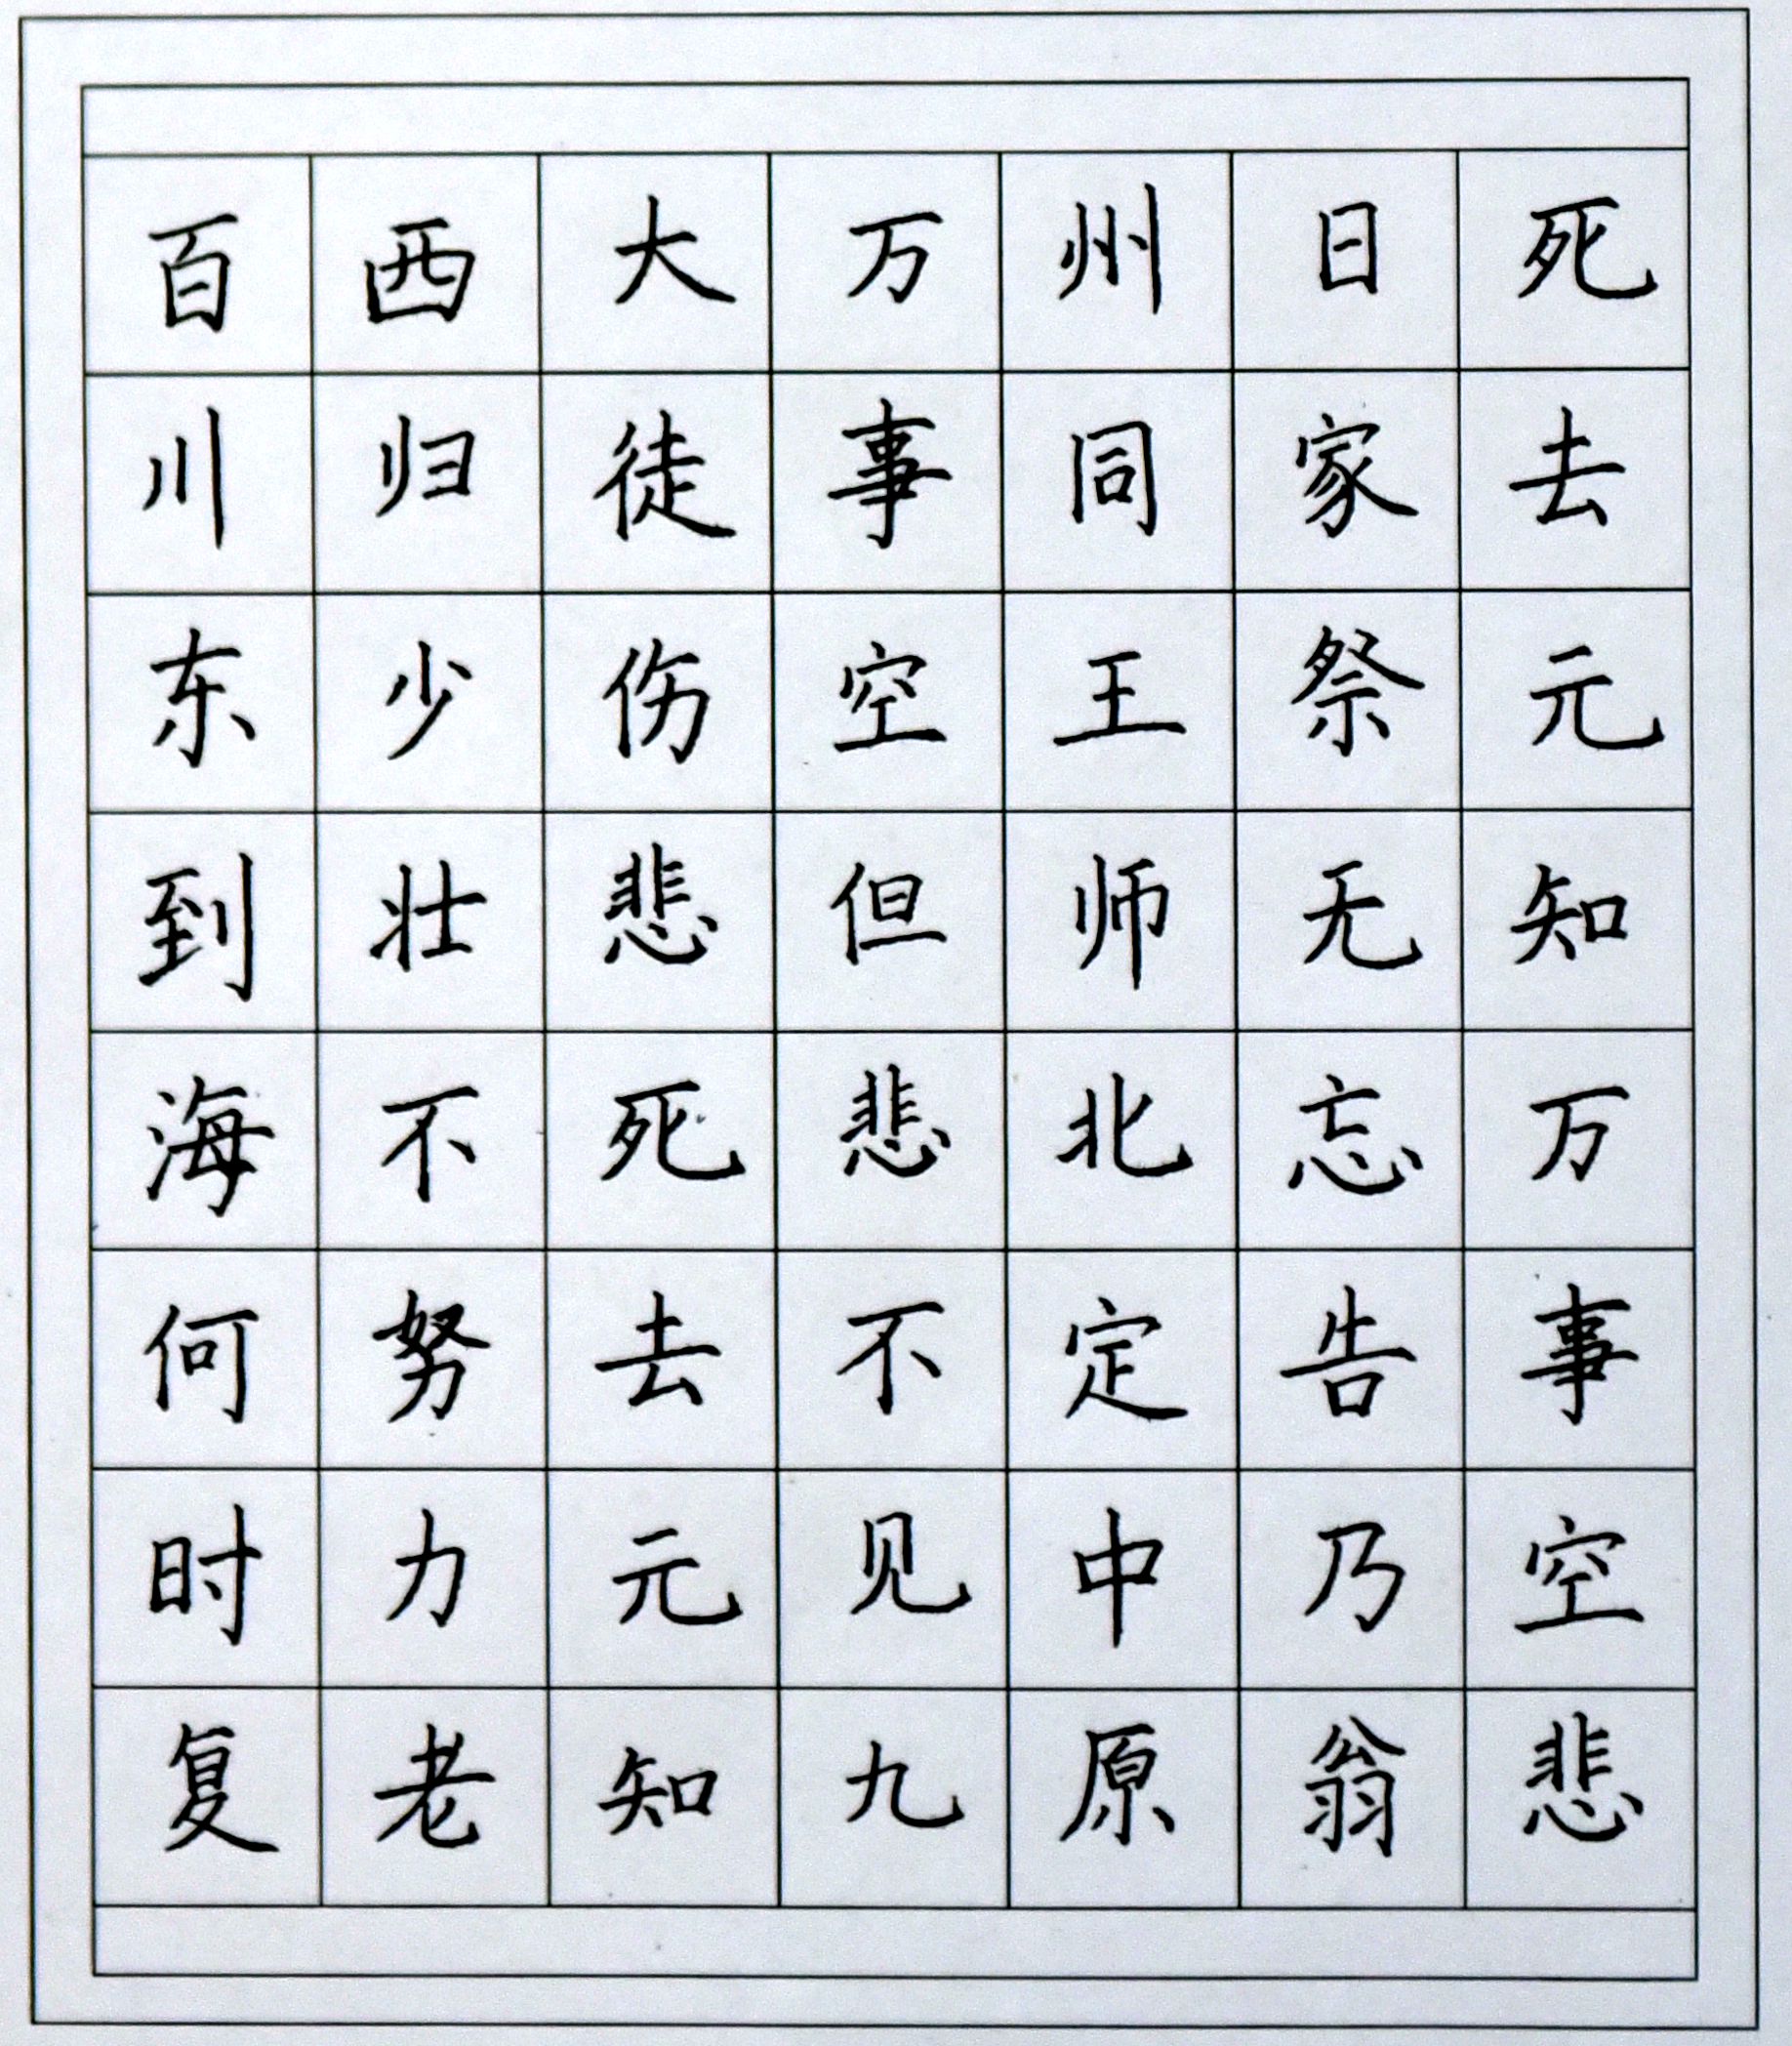 死去元知万事空悲
日家祭无忘告乃翁
州同王师北定中原
万事空但悲不见九
大徒伤悲死去元知
西归少壮不努力老
百川东到海何时复